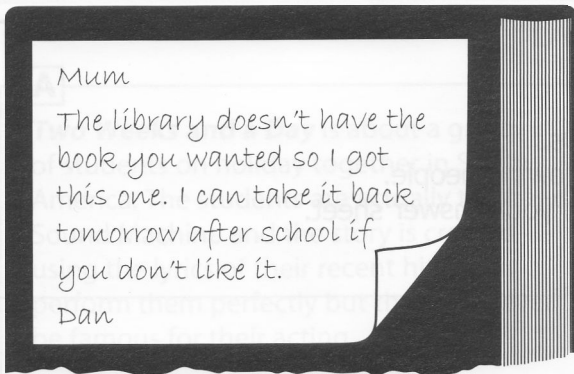 Mum
The library doesn't have the
book you wanted so I got
this one. I can take it back
tomorrow after school if
you don't like it.
Dan